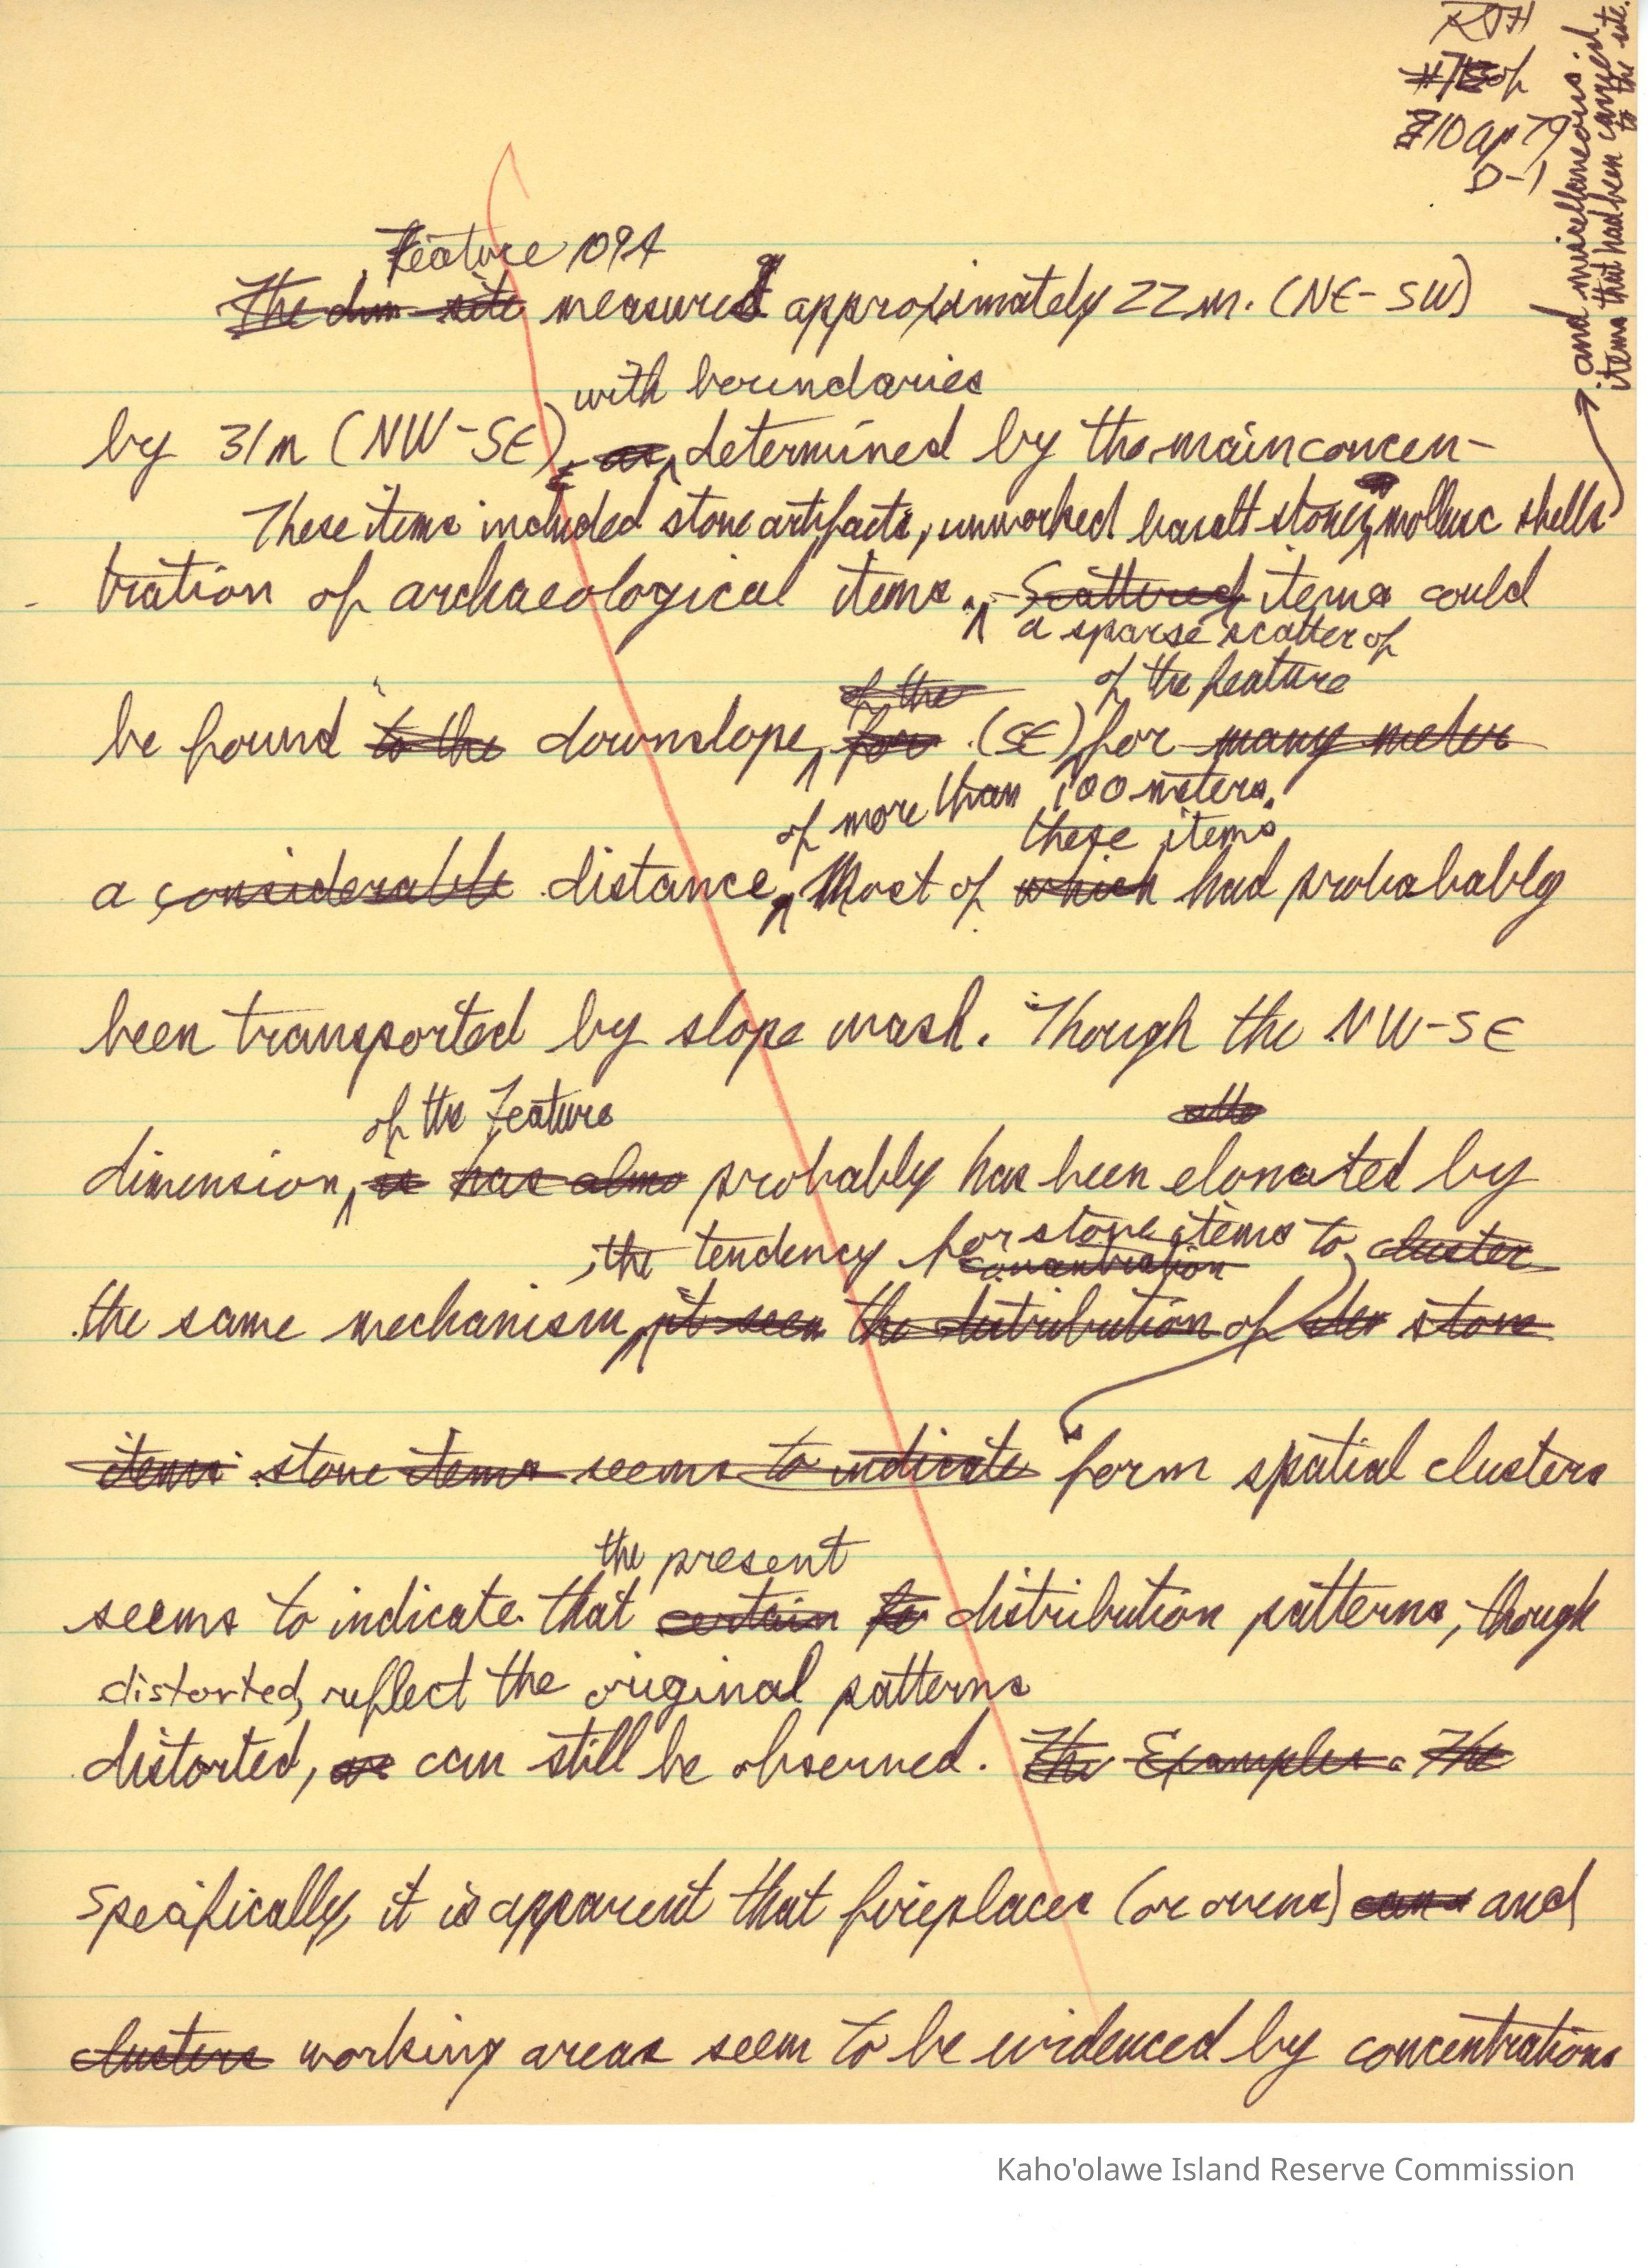 RJH
of
10 Ap 79
D-1
and miscellaneous
items that had been carried
to the site.
Feature 109A
The dim site measures approximately 22 m. (NE-SW)
with boundaries
by 31m (NW-SE), as determined by the main concen-
These items included stone artifacts, unworked basalt stones, mollusc shells
tration of archaeological items. Scattered items could
a sparse scatter of
of the of the feature
be found to the downslope, for (SE) for many meter
of more than 100 meters.
these items
a considerable distance, Most of which had probabably
been transported by slope wash. Though the NW-SE
of the Feature
dimension, is has almo probably has been elonated by
, the tendency for stone items to cluster
concentration
the same mechanism, it seem the distribution of stone
items stone items seems to indicate form spatial clusters
the present
seems to indicate that certain distribution patterns, though
distorted, reflect the original patterns
distorted, can still be observed. The Examples The
Specifically, it is apparent that fireplaces (or ovens) and
clusters working areas seem to be evidenced by concentrations
Kaho'olawe Island Reserve Commission